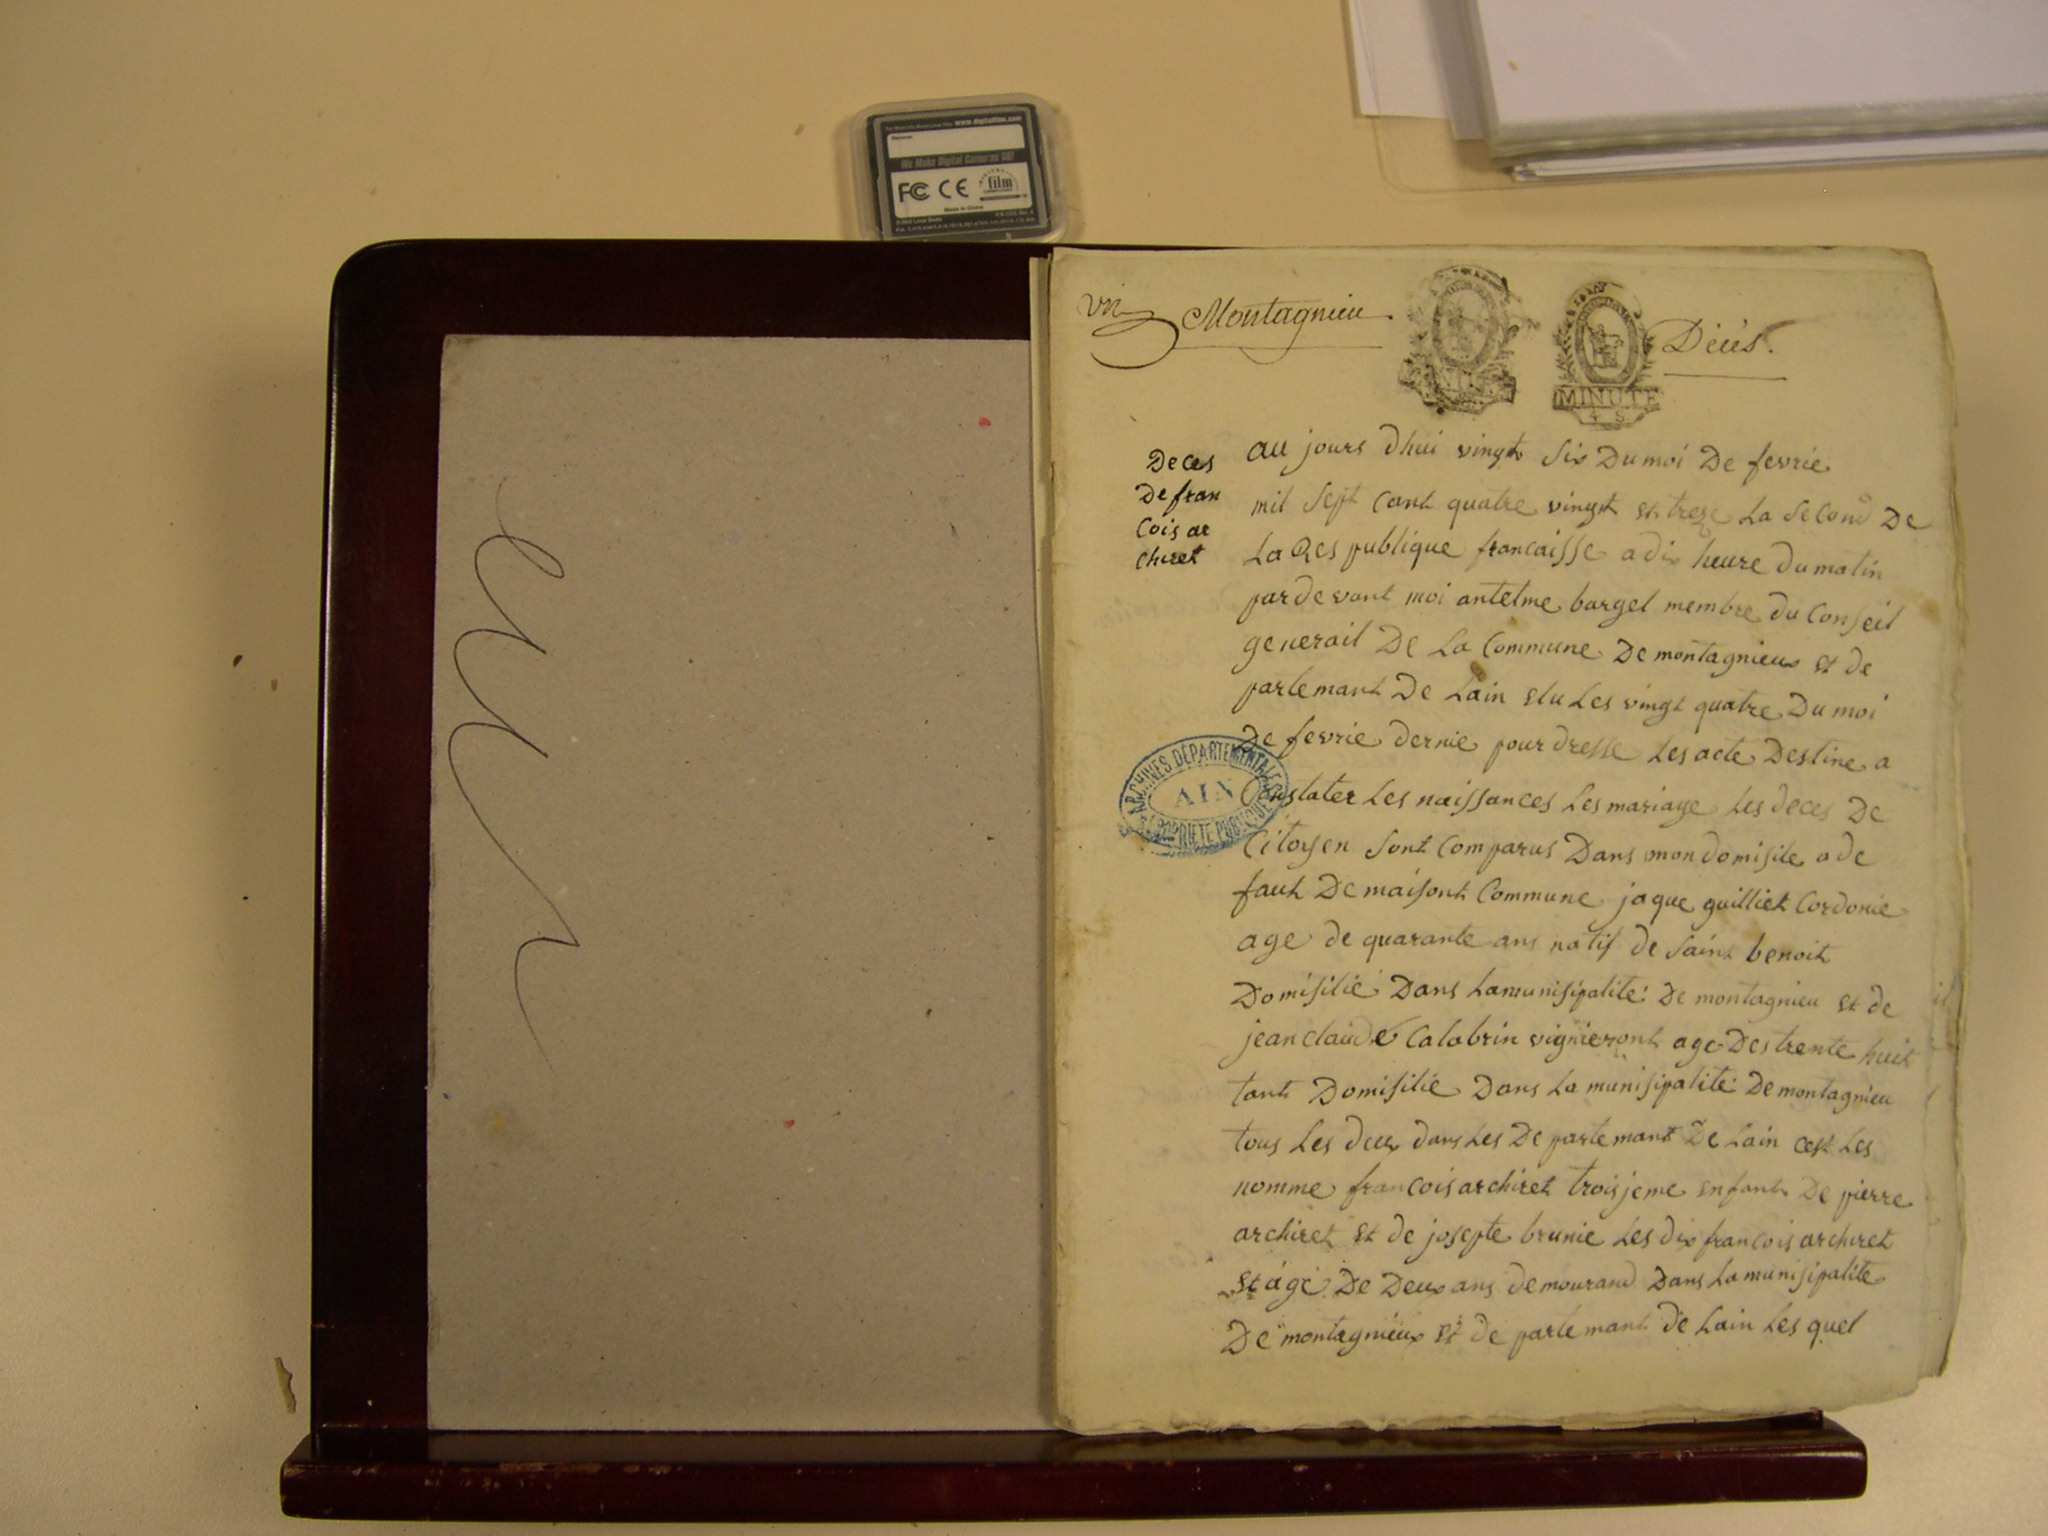 www.digitalfilm.com
We Make Digital Cameras Go!
FC CE film
Made in China
Montagnieu.
Décés.
MINUTE
4 S
Deces
De fran
Cois ar
chiret
au jours dhui vingt Six Du moi De fevrie
mil Sept Cant quatre vingt et treze La Second De
La Res publique francaisse a dix heure du matin
par de vant moi antelme bargel membre du Conseil
generail De La Commune De montagnieux et de
partemant De Lain elu Les vingt quatre Du moi
De fevrie dernie pour dresse Les acte Destine a
Constater Les naissances Les mariage Les deces De
Citoyen Sont Comparus Dans mon domisile a de
faut De maisont Commune jaque guilliet Cordonie
age de quarante ans natif de Saint benoit
Domisilie Dans La munisipalite De montagnieu et de
jean claude Calabrin vignieront age Des trente huit
tant Domisilie Dans La munisipalite De montagnieu
tous Les deux dans Les De partemant De Lain cest Les
nomme francois archiret troisjeme enfant De pierre
archiret et de josepte brunie Les dix francois archiret
et agé De Deux ans demourand Dans La munisipalite
De montagnieux et de partemant de Lain Les quel
ARCHIVES DÉPARTEMENTALES
AIN
PROPRIÉTÉ PUBLIQUE